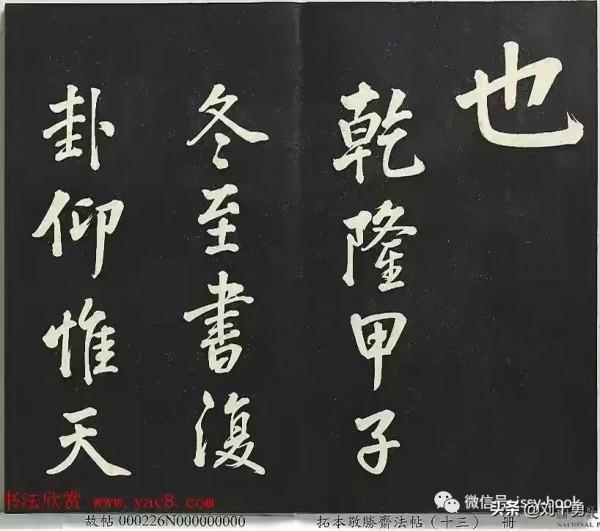 也
乾隆甲子
冬至書復
卦仰惟天
书法欣赏 www.yac8.com
微信号: issy-hook
头条 @刘十勇
故帖 000226N000000000
拓本敬勝齋法帖(十三) 冊
NATIONAL